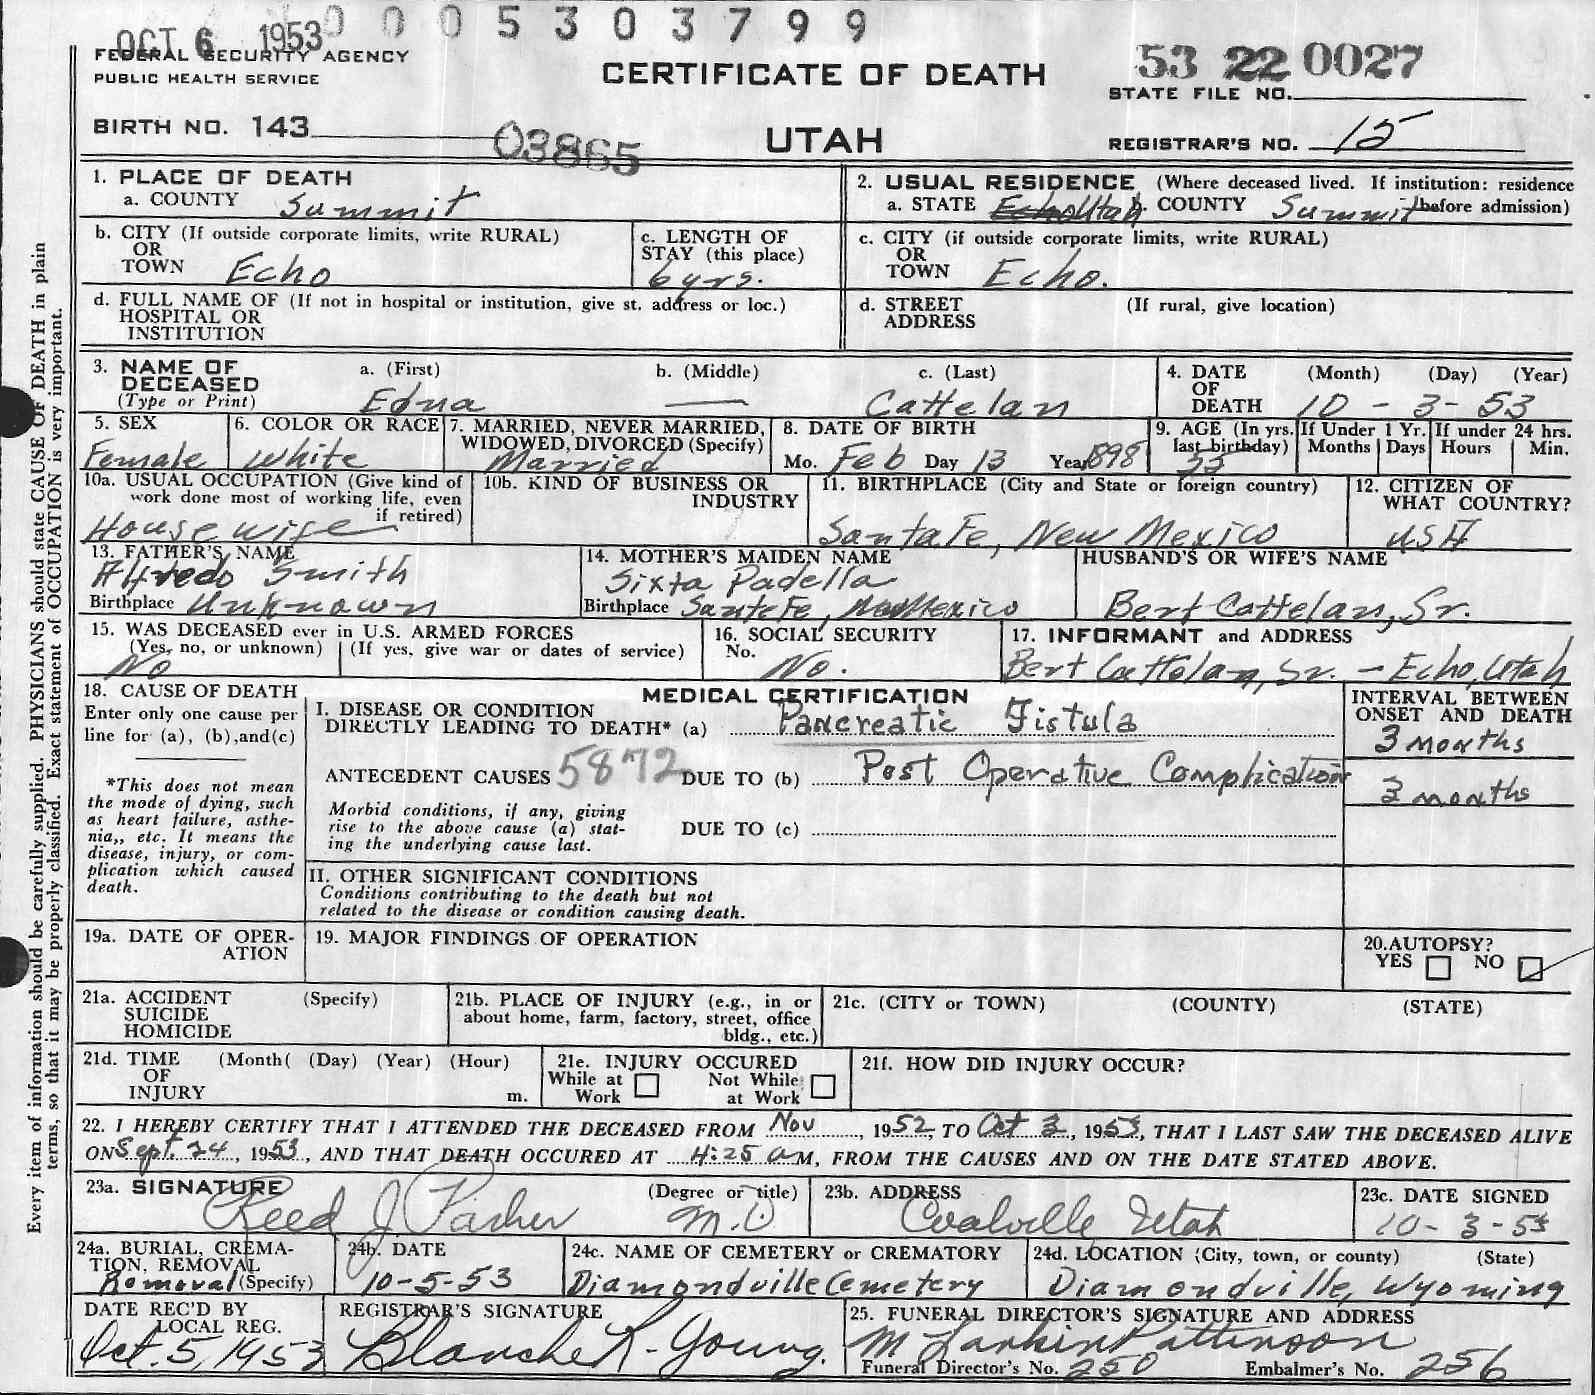 0005303799
OCT 6 1953
FEDERAL SECURITY AGENCY
PUBLIC HEALTH SERVICE
CERTIFICATE OF DEATH
53 22 0027
STATE FILE NO.
BIRTH NO. 143
03865
UTAH
REGISTRAR'S NO. 15
1. PLACE OF DEATH
a. COUNTY Summit
2. USUAL RESIDENCE (Where deceased lived. If institution: residence before admission)
a. STATE Echo Utah b. COUNTY Summit
b. CITY (If outside corporate limits, write RURAL)
OR
TOWN Echo
c. LENGTH OF
STAY (this place)
6 yrs.
c. CITY (if outside corporate limits, write RURAL)
OR
TOWN Echo.
d. FULL NAME OF (If not in hospital or institution, give st. address or loc.)
HOSPITAL OR
INSTITUTION
d. STREET (If rural, give location)
ADDRESS
3. NAME OF
DECEASED
(Type or Print)
a. (First) b. (Middle) c. (Last)
Edna — Cattelan
4. DATE (Month) (Day) (Year)
OF
DEATH 10 - 3 - 53
5. SEX
Female
6. COLOR OR RACE
White
7. MARRIED, NEVER MARRIED,
WIDOWED, DIVORCED (Specify)
Married
8. DATE OF BIRTH
Mo. Feb Day 13 Year 1898
9. AGE (In yrs.
last birthday)
55
If Under 1 Yr.
Months Days
If under 24 hrs.
Hours Min.
10a. USUAL OCCUPATION (Give kind of
work done most of working life, even
if retired)
Housewife
10b. KIND OF BUSINESS OR
INDUSTRY
11. BIRTHPLACE (City and State or foreign country)
Santa Fe, New Mexico
12. CITIZEN OF
WHAT COUNTRY?
USA
13. FATHER'S NAME
Alfredo Smith
Birthplace Unknown
14. MOTHER'S MAIDEN NAME
Sixta Padella
Birthplace Santa Fe, New Mexico
HUSBAND'S OR WIFE'S NAME
Bert Cattelan, Sr.
15. WAS DECEASED ever in U.S. ARMED FORCES
(Yes, no, or unknown) (If yes, give war or dates of service)
No
16. SOCIAL SECURITY
No.
No.
17. INFORMANT and ADDRESS
Bert Cattelan, Sr. - Echo, Utah
18. CAUSE OF DEATH
Enter only one cause per
line for (a), (b), and (c)
*This does not mean
the mode of dying, such
as heart failure, asthe-
nia,, etc. It means the
disease, injury, or com-
plication which caused
death.
MEDICAL CERTIFICATION
I. DISEASE OR CONDITION
DIRECTLY LEADING TO DEATH* (a) Pancreatic Fistula
ANTECEDENT CAUSES 5872 DUE TO (b) Post Operative Complication
Morbid conditions, if any, giving
rise to the above cause (a) stat-
ing the underlying cause last.
DUE TO (c)
INTERVAL BETWEEN
ONSET AND DEATH
3 months
3 months
II. OTHER SIGNIFICANT CONDITIONS
Conditions contributing to the death but not
related to the disease or condition causing death.
19a. DATE OF OPER-
ATION
19. MAJOR FINDINGS OF OPERATION
20. AUTOPSY?
YES NO
21a. ACCIDENT (Specify)
SUICIDE
HOMICIDE
21b. PLACE OF INJURY (e.g., in or
about home, farm, factory, street, office
bldg., etc.)
21c. (CITY or TOWN) (COUNTY) (STATE)
21d. TIME (Month( (Day) (Year) (Hour)
OF
INJURY m.
21e. INJURY OCCURED
While at Work Not While at Work
21f. HOW DID INJURY OCCUR?
22. I HEREBY CERTIFY THAT I ATTENDED THE DECEASED FROM Nov, 1952, TO Oct 3, 1953, THAT I LAST SAW THE DECEASED ALIVE
ON Sept. 24, 1953, AND THAT DEATH OCCURED AT 4:25 a M, FROM THE CAUSES AND ON THE DATE STATED ABOVE.
23a. SIGNATURE (Degree or title)
Reed J M.D
23b. ADDRESS
Coalville Utah
23c. DATE SIGNED
10-3-53
24a. BURIAL, CREMA-
TION, REMOVAL
Removal (Specify)
24b. DATE
10-5-53
24c. NAME OF CEMETERY or CREMATORY
Diamondville Cemetery
24d. LOCATION (City, town, or county) (State)
Diamondville, Wyoming
DATE REC'D BY
LOCAL REG.
Oct. 5, 1953
REGISTRAR'S SIGNATURE
Blanche R. Young.
25. FUNERAL DIRECTOR'S SIGNATURE AND ADDRESS
M Larkin Pattinson
Funeral Director's No. 250 Embalmer's No. 256
Every item of information should be carefully supplied. PHYSICIANS should state CAUSE OF DEATH in plain
terms, so that it may be properly classified. Exact statement of OCCUPATION is very important.